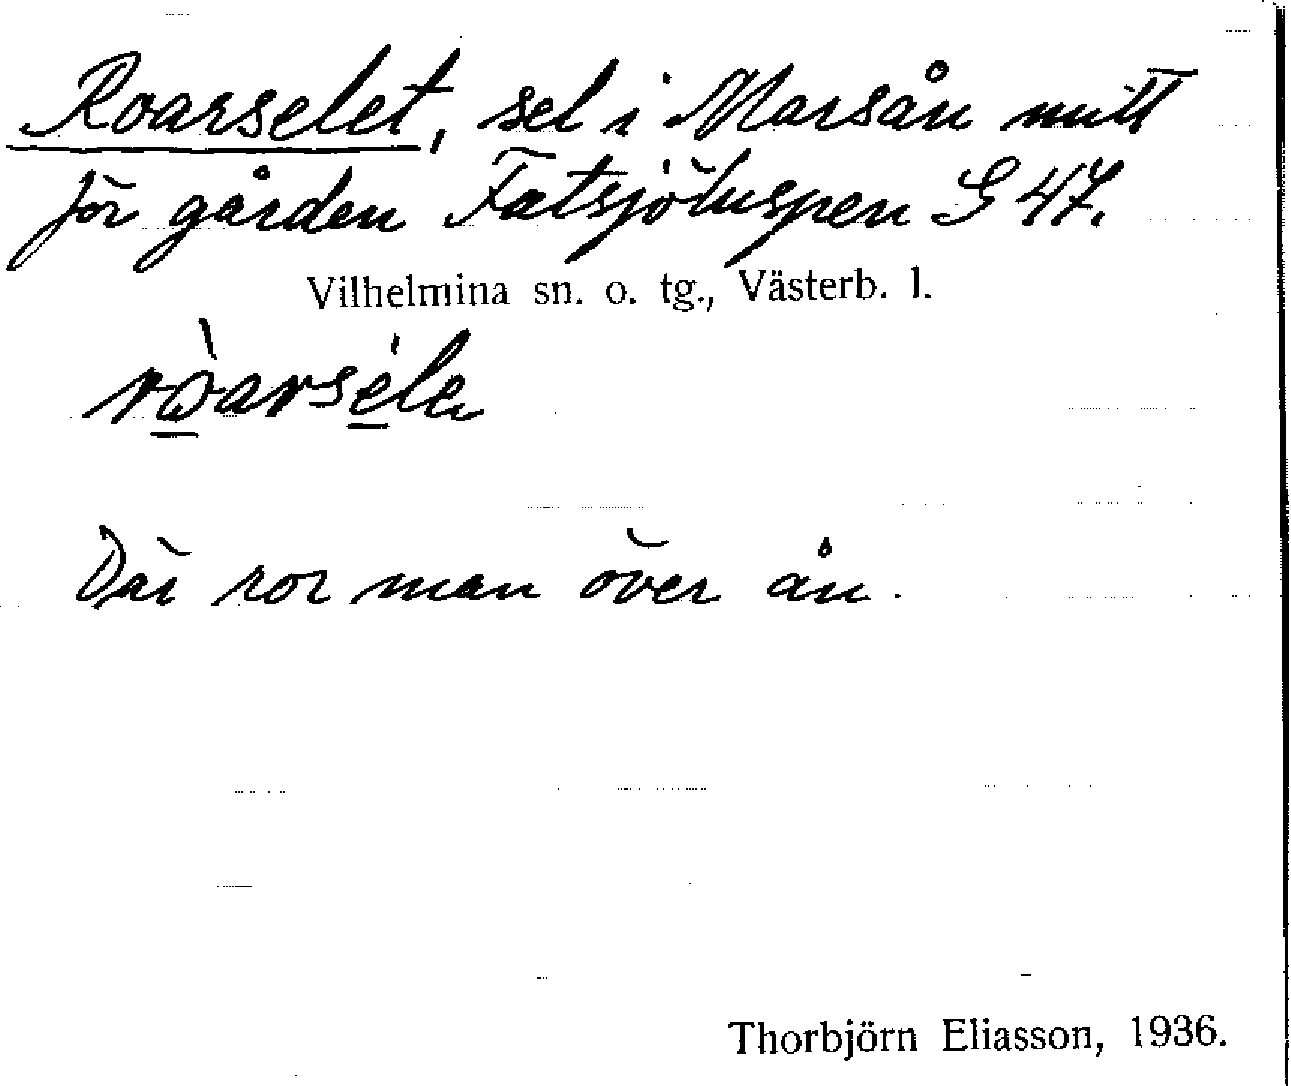 Roarselet, sel i Marsån mitt
för gården Fatsjöluspen S 47.
Vilhelmina sn. o. tg., Västerb. l.
Där ror man över ån.
Thorbjörn Eliasson, 1936.